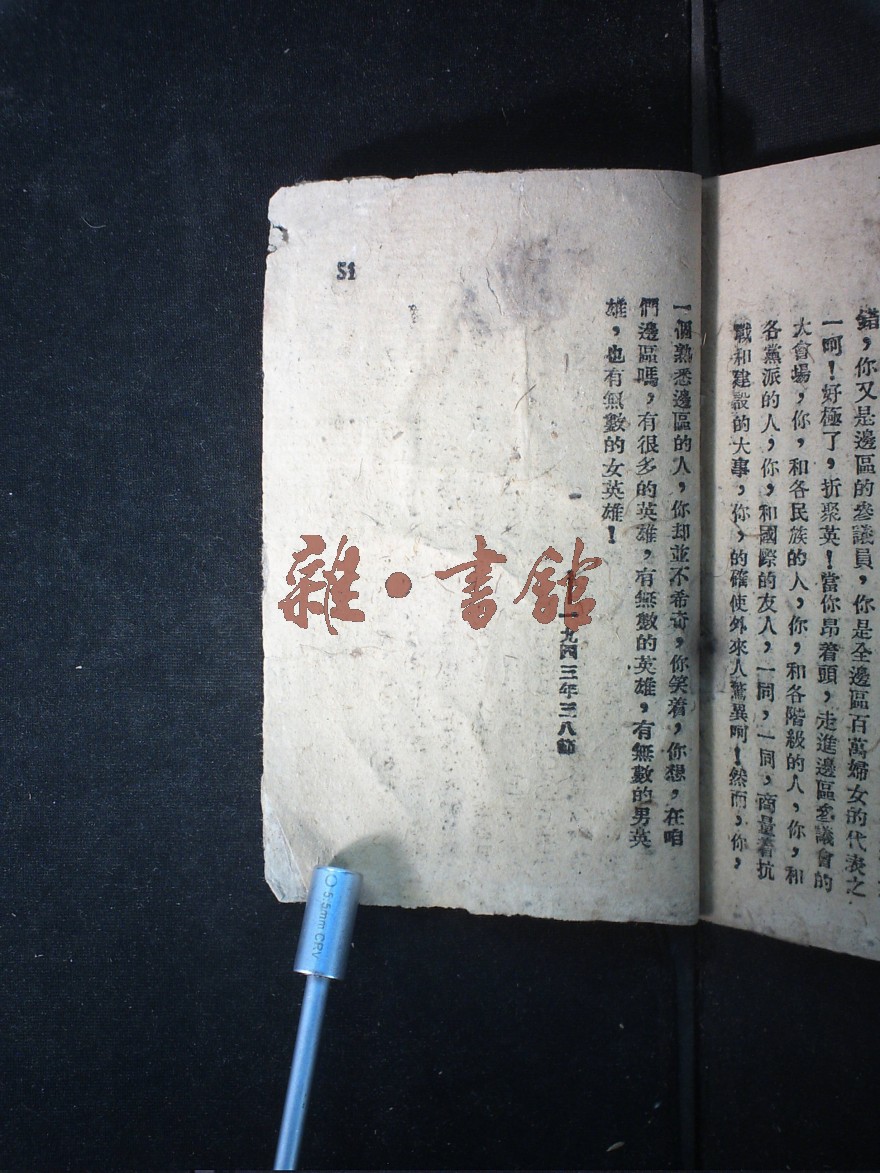 錯，你又是邊區的參議員，你是全邊區百萬婦女的代表之
一呵！好極了，折聚英！當你昂着頭，走進邊區參議會的
大會場，你，和各民族的人，你，和各階級的人，你，和
各黨派的人，你，和國際的友人，一同，一同，商量着抗
戰和建設的大事，你，的確使外來人驚異呵！然而，你，
一個熟悉邊區的人，你却並不希奇，你笑着，你想，在咱
們邊區嗎，有很多的英雄，有無數的英雄，有無數的男英
雄，也有無數的女英雄！
一九四三年三八節
51
雜·書館
5.5mm CRV